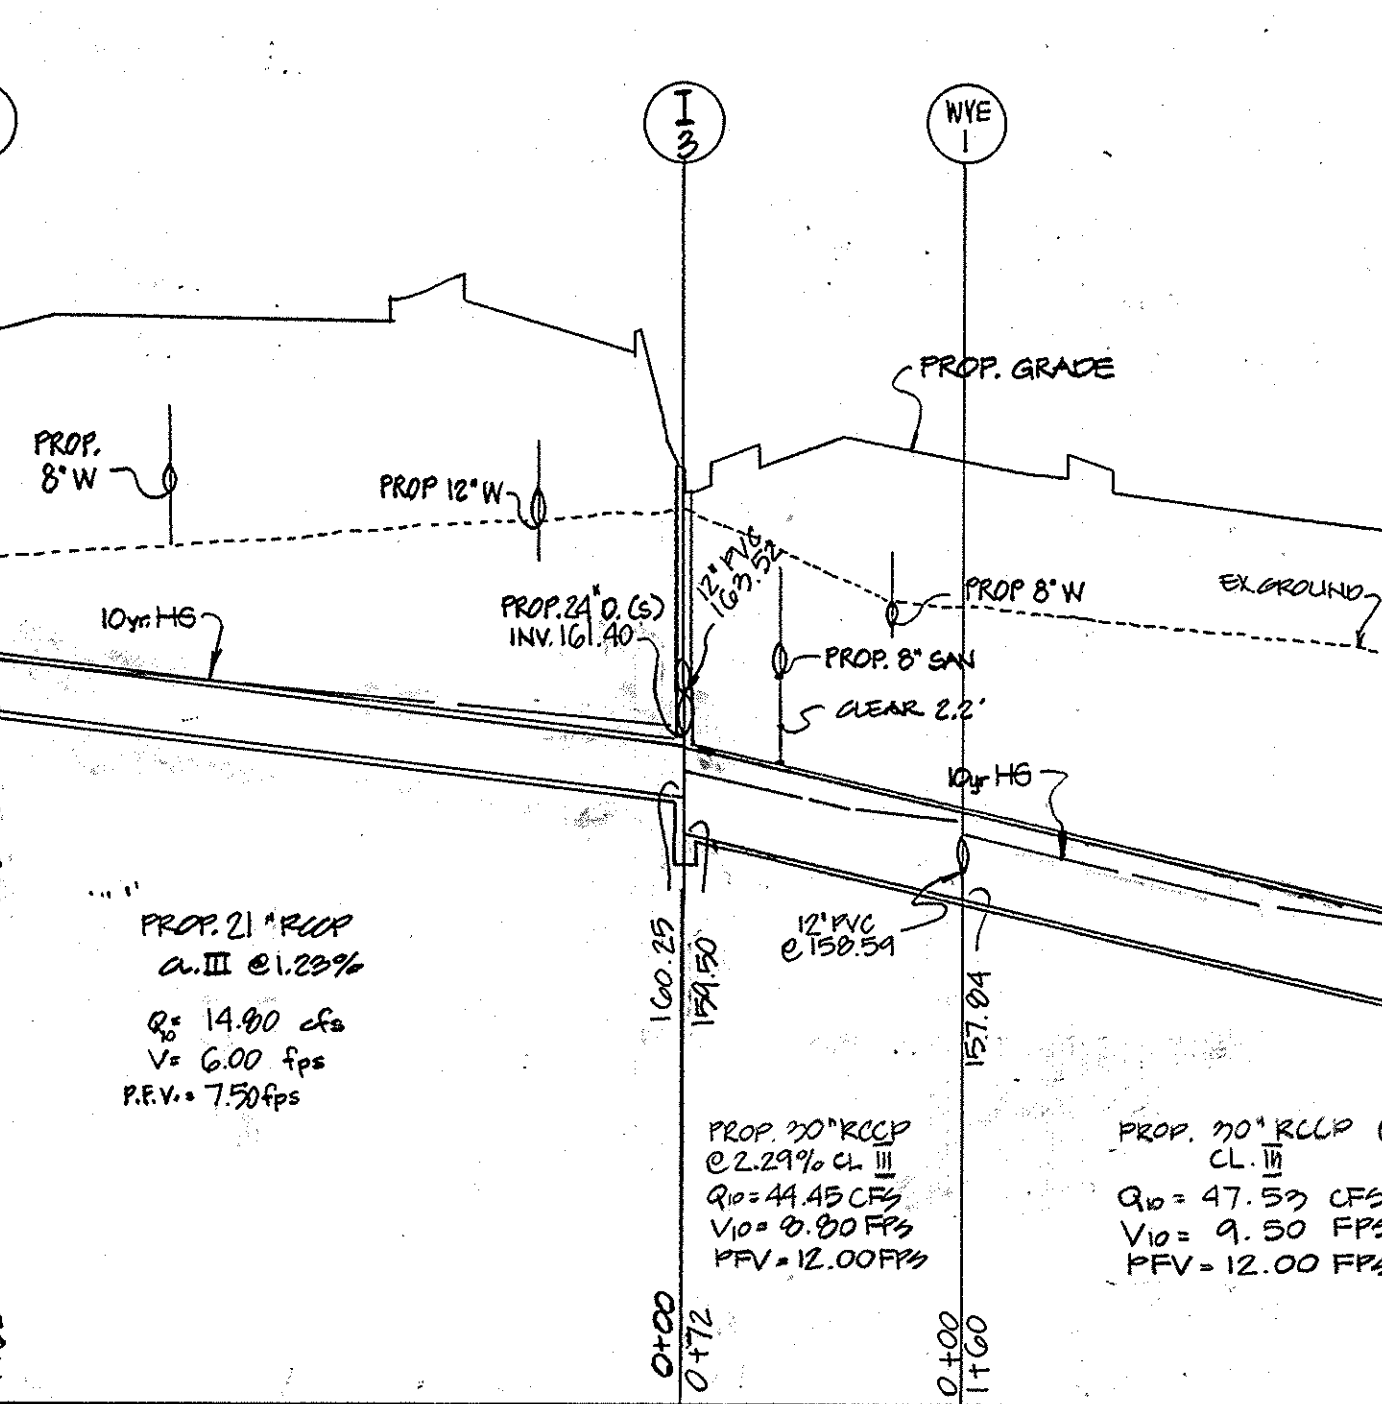 I
3
WYE
1
PROP. GRADE
PROP.
8" W
PROP 12" W
12" PVC
163.52
PROP. 24" D. (S)
INV. 161.40
10yr. HG
PROP 8" W
EX. GROUND
PROP. 8" SAN
CLEAR 2.2'
10yr HG
12" PVC
@ 158.59
PROP. 21" RCCP
CL. III @ 1.23%
Q10= 14.80 cfs
V= 6.00 fps
P.F.V.= 7.50 fps
160.25
159.50
157.84
PROP. 30" RCCP
@ 2.29% CL III
Q10 = 44.45 CFS
V10= 8.80 FPS
PFV = 12.00 FPS
PROP. 30" RCCP
CL. III
Q10 = 47.53 CFS
V10 = 9.50 FPS
PFV = 12.00 FPS
0+00
0+72
0+00
1+60